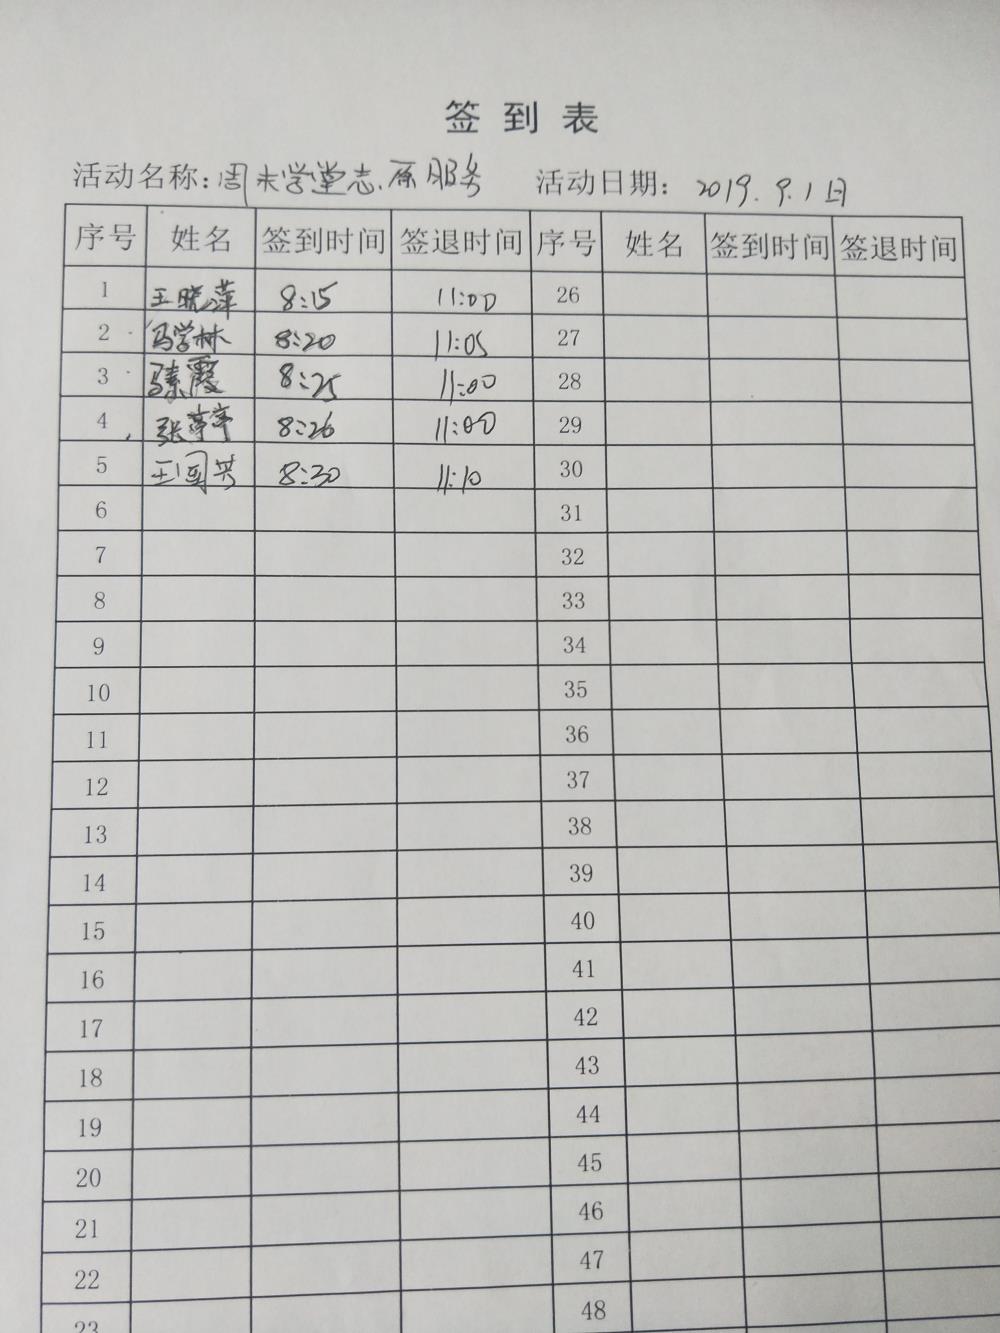 签到表
活动名称：周末学堂志愿服务 活动日期：2019.9.1日
序号 姓名 签到时间 签退时间 序号 姓名 签到时间 签退时间
1 王晓萍 8:15 11:00 26
2 冯学林 8:20 11:05 27
3 霞 8:25 11:00 28
4 张 8:26 11:00 29
5 王国英 8:30 11:10 30
6 31
7 32
8 33
9 34
10 35
11 36
12 37
13 38
14 39
15 40
16 41
17 42
18 43
19 44
20 45
21 46
22 47
23 48